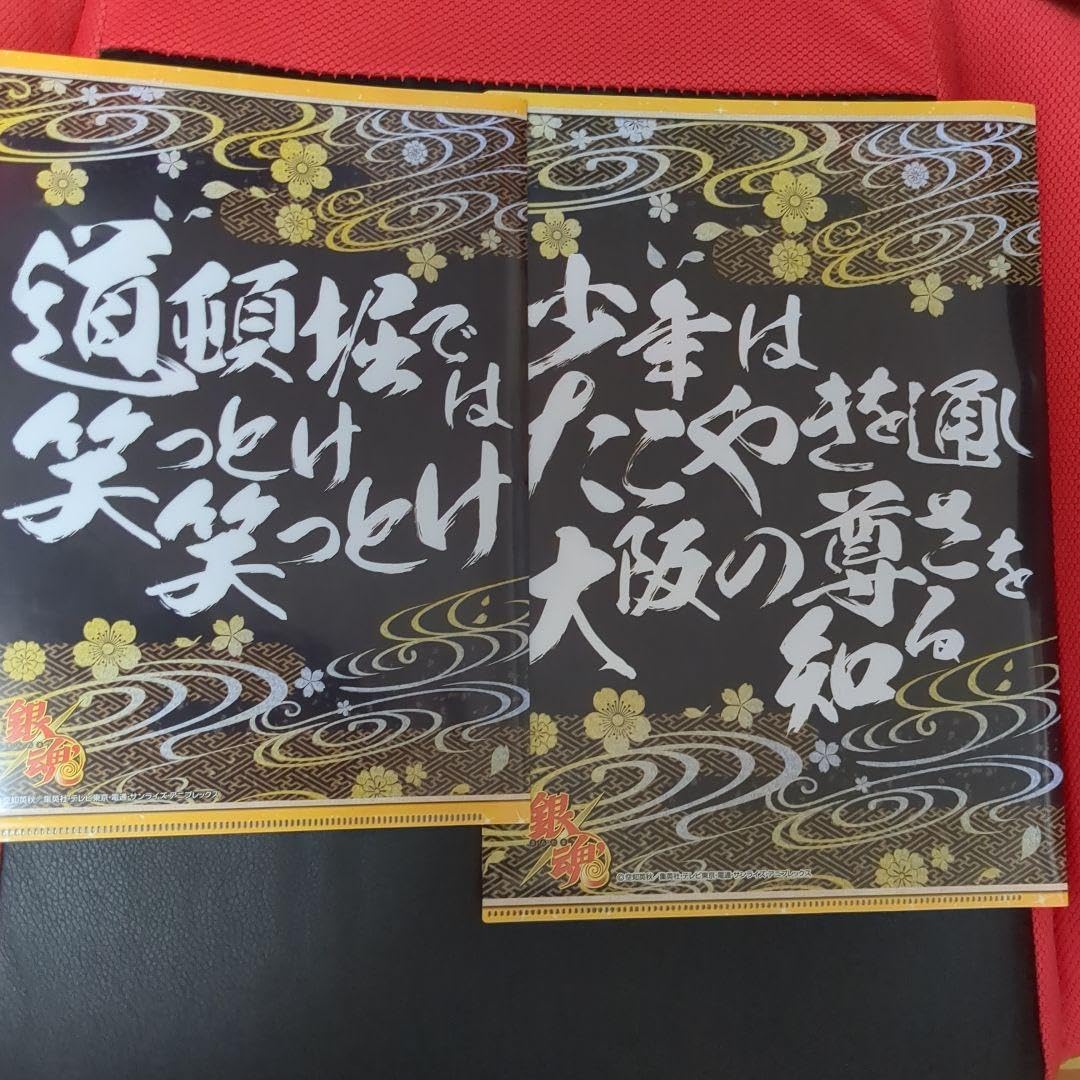 道頓堀では
笑っとけ
笑っとけ
銀魂
空知英秋/集英社・テレビ東京・電通・サンライズ・アニプレックス
少年は
たこやきを通し
大阪の尊さを
知る
銀魂
©空知英秋/集英社・テレビ東京・電通・サンライズ・アニプレックス